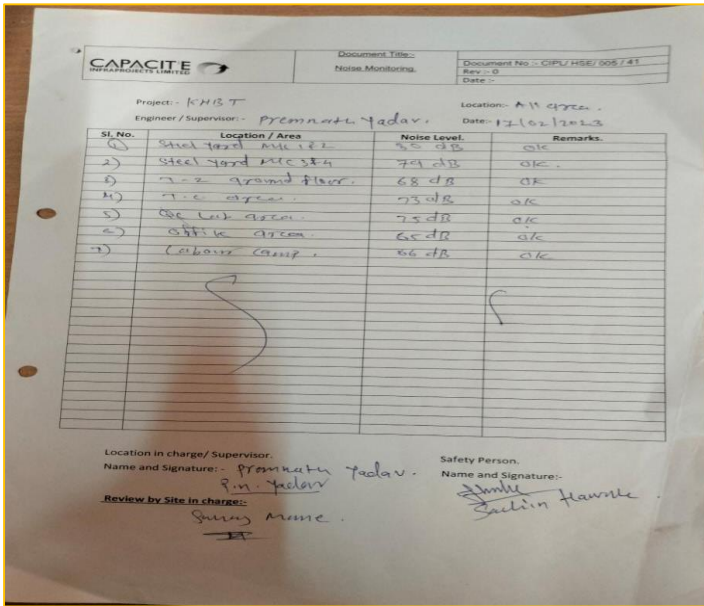 CAPACIT'E
INFRAPROJECTS LIMITED
Document Title:-
Noise Monitoring.
Document No :- CIPL/ HSE/ 005 / 41
Rev :- 0
Date :-
Project: - KHBT
Location:- All area.
Engineer / Supervisor:- Premnath Yadav.
Date:- 17/02/2023
Sl. No. Location / Area Noise Level. Remarks.
1) Steel Yard M/C 1&2 dB ok
2) Steel Yard M/C 3&4 79 dB ok.
3) T-2 ground floor. 68 dB ok
4) area. 73 dB ok
5) Qc Lab area. 75 dB ok
6) area. 65 dB ok
7) Labour Camp. 66 dB ok
Location in charge/ Supervisor.
Safety Person.
Name and Signature:- Premnath Yadav.
Name and Signature:-
P.n. Yadav
Sachin
Review by Site in charge:-